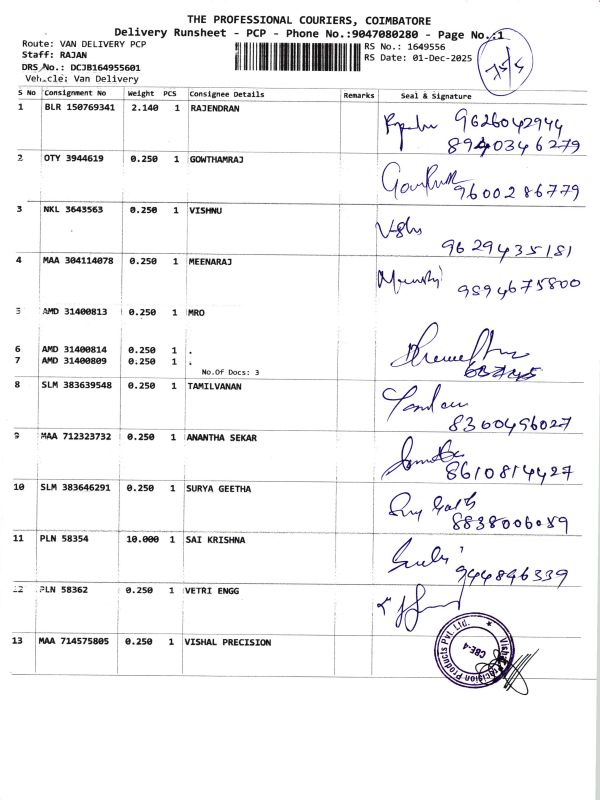 THE PROFESSIONAL COURIERS, COIMBATORE
Delivery Runsheet - PCP - Phone No.:9047080280 - Page No.:1
Route: VAN DELIVERY PCP RS No.: 1649556
Staff: RAJAN RS Date: 01-Dec-2025
DRS No.: DCJB164955601
Vehicle: Van Delivery
S No Consignment No Weight PCS Consignee Details Remarks Seal & Signature
1 BLR 150769341 2.140 1 RAJENDRAN 9626042944
8940346279
2 OTY 3944619 0.250 1 GOWTHAMRAJ
9600286779
3 NKL 3643563 0.250 1 VISHNU
9629435181
4 MAA 304114078 0.250 1 MEENARAJ
9894675800
5 AMD 31400813 0.250 1 MRO
6 AMD 31400814 0.250 1 .
7 AMD 31400809 0.250 1 .
No.Of Docs: 3
8 SLM 383639548 0.250 1 TAMILVANAN
8300496027
9 MAA 712323732 0.250 1 ANANTHA SEKAR
8610814427
10 SLM 383646291 0.250 1 SURYA GEETHA
8838006059
11 PLN 58354 10.000 1 SAI KRISHNA
944846339
12 PLN 58362 0.250 1 VETRI ENGG
13 MAA 714575805 0.250 1 VISHAL PRECISION
CBE-4
Products Pvt. Ltd.